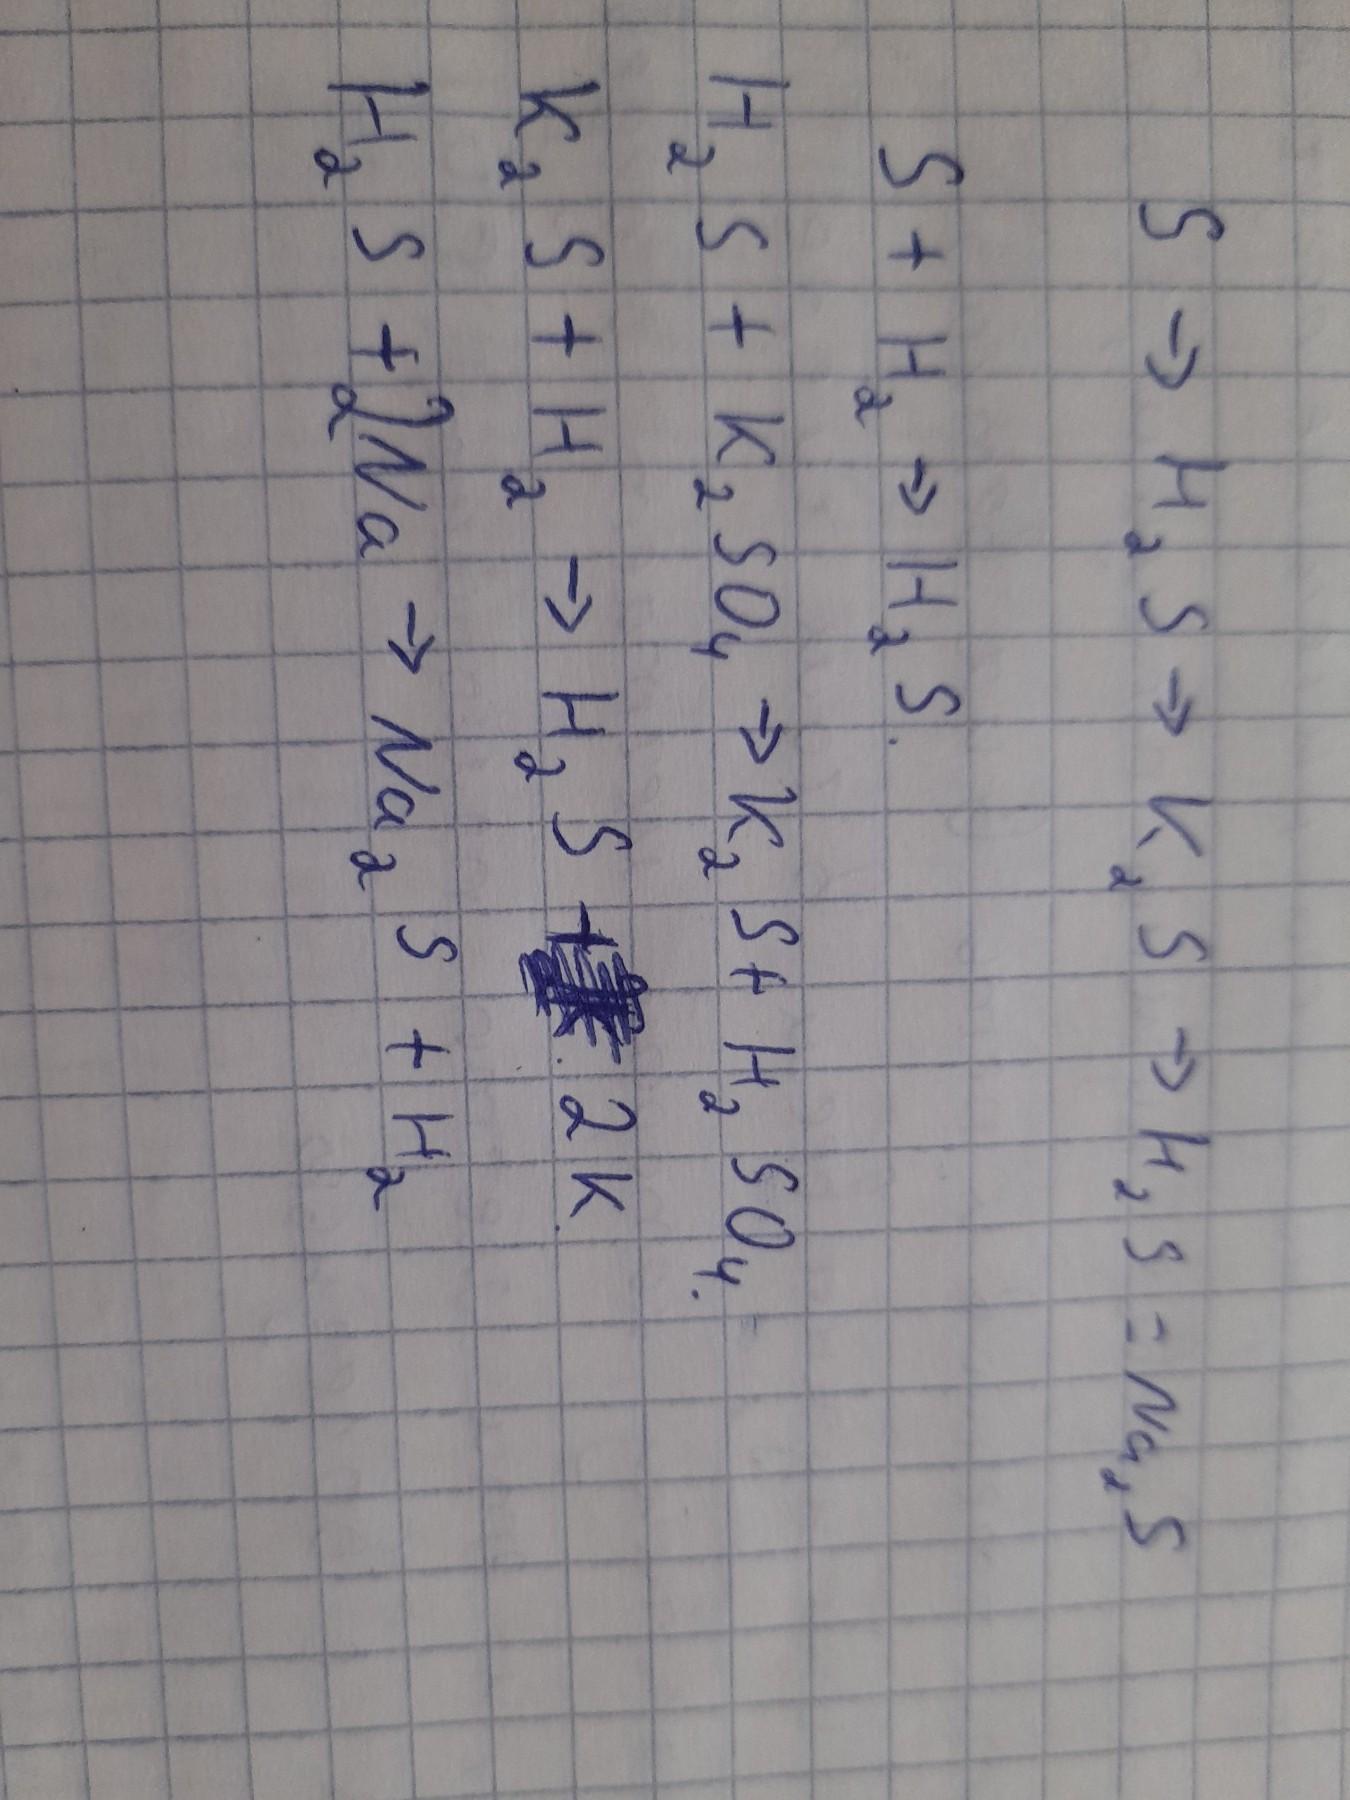 S → H₂S → K₂S → H₂S = Na₂S
S + H₂ → H₂S.
H₂S + K₂SO₄ → K₂S + H₂SO₄.
K₂S + H₂ → H₂S + 2K.
H₂S + 2Na → Na₂S + H₂